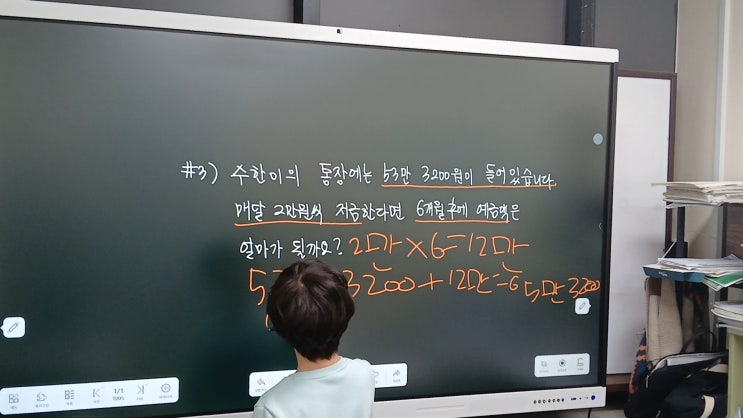 #3) 주한이의 통장에는 53만 3200원이 들어있습니다.
매달 2만원씩 저금한다면 6개월후에 예금액은
얼마가 될까요? 2만×6=12만
5 3200+12만=65만3200
1/1
100%